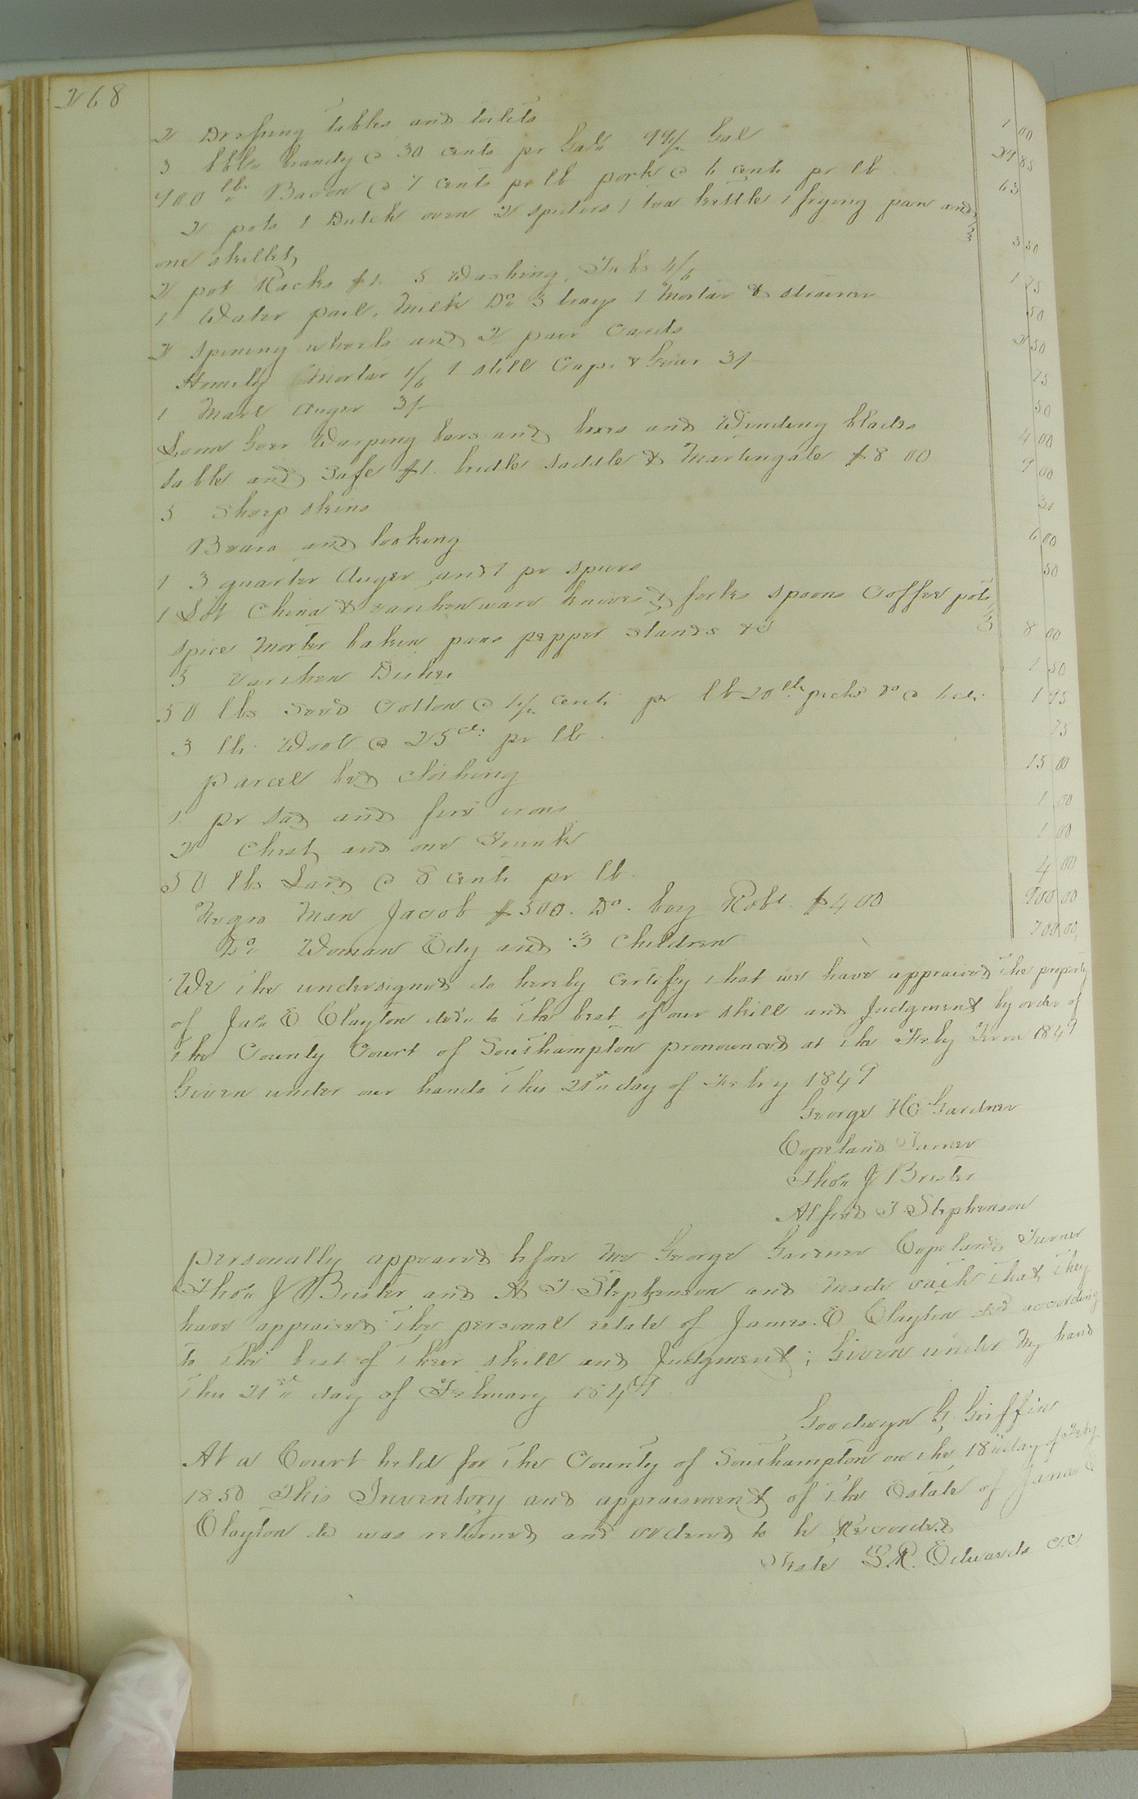 268
2 Dressing tables and toilets 1 00
3 bbls brandy @ 30 cents pr Gals 99½ Gal 29 85
900 lbs Bacon @ 7 cents pr lb pork @ 6 cents pr lb 63
2 pots 1 Dutch oven 2 spiders 1 tea kettle 1 frying pan and
one skillet 3 50
2 pot Racks $1. 5 Washing Tubs 4/6 1 75
1 Water pail, Milk Do 3 trays 1 Mortar & strainer 50
2 spining wheels and 2 pair Cards 2 50
Homily Mortar 1/6 1 still Cap & 3/- 75
1 Marl Auger 3/- 50
Loom Gear Warping bars and boxes and Winding blades 4 00
table and Safe $1. bridle saddle & Martingale $8 00 9 00
3 Sheep skins 30
Beauro and looking 6 00
1 3 quarter Auger and 1 pr spurs 50
1 Lot China & earthenware knives & forks spoons Coffee pots
spice Morter baken pans pepper stands &c 8 00
3 earthen Dishes 1 50
50 lbs Seed Cotton @ 1½ cents pr lb 20 lbs do @ 1 75
3 lb Wool @ 25 cts pr lb 75
parcel bed clothing 15 00
1 pr sad and fire irons 1 00
2 Chest and one Trunk 1 00
50 lbs Lard @ 8 cents pr lb 4 00
Negro Man Jacob $500. Do. boy Robt. $400 900 00
Do Woman Edy and 3 Children 700 00
We the undersigned do hereby certify that we have appraised the property
of Jas E Clayton decd to the best of our skill and Judgment by order of
the County Court of Southampton pronounced at the Feby Term 1849
Given under our hands this 21st day of Febry 1849
George H Gardner
Copeland Turner
Thos J Brister
Alfred T Stephenson
personally appeared before me George Gardner Copeland Turner
Thos J Brister and A T Stephenson and made oath that they
have appraised the personal estate of James E Clayton decd according
to the best of their skill and Judgment; Given under My hand
this 21st day of February 1849
Goodwyn G Griffin
At a Court held for the County of Southampton on the 18th day of Feby
1850 This Inventory and appraisment of the Estate of James E
Clayton d was returned and ordered to be Recorded
Teste L.R. Edwards C.C